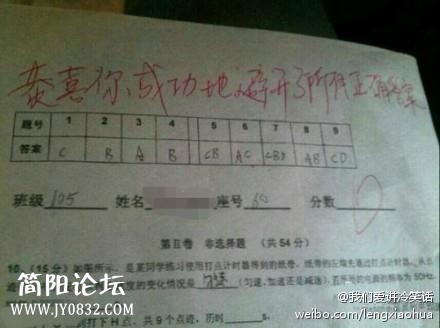 恭喜你,成功地避开了所有正确答案
题号 1 2 3 4 5 6 7 8 9
答案 C B A B CB AC CBD AB CD
班级 105 姓名 座号 60 分数 0
第Ⅱ卷 非选择题 (共 54 分)
10.(15分)如图所示,是某同学练习使用打点计时器得到的纸带,纸带的左端先通过打点计时器,从
度的变化情况是 匀速 (匀速,加速还是减速),若所用的电源的频率为 50Hz
打下 H 点,共 9 个点迹,历时 s,
简阳论坛
www.JY0832.com
@我们爱讲冷笑话
weibo.com/lengxiaohua